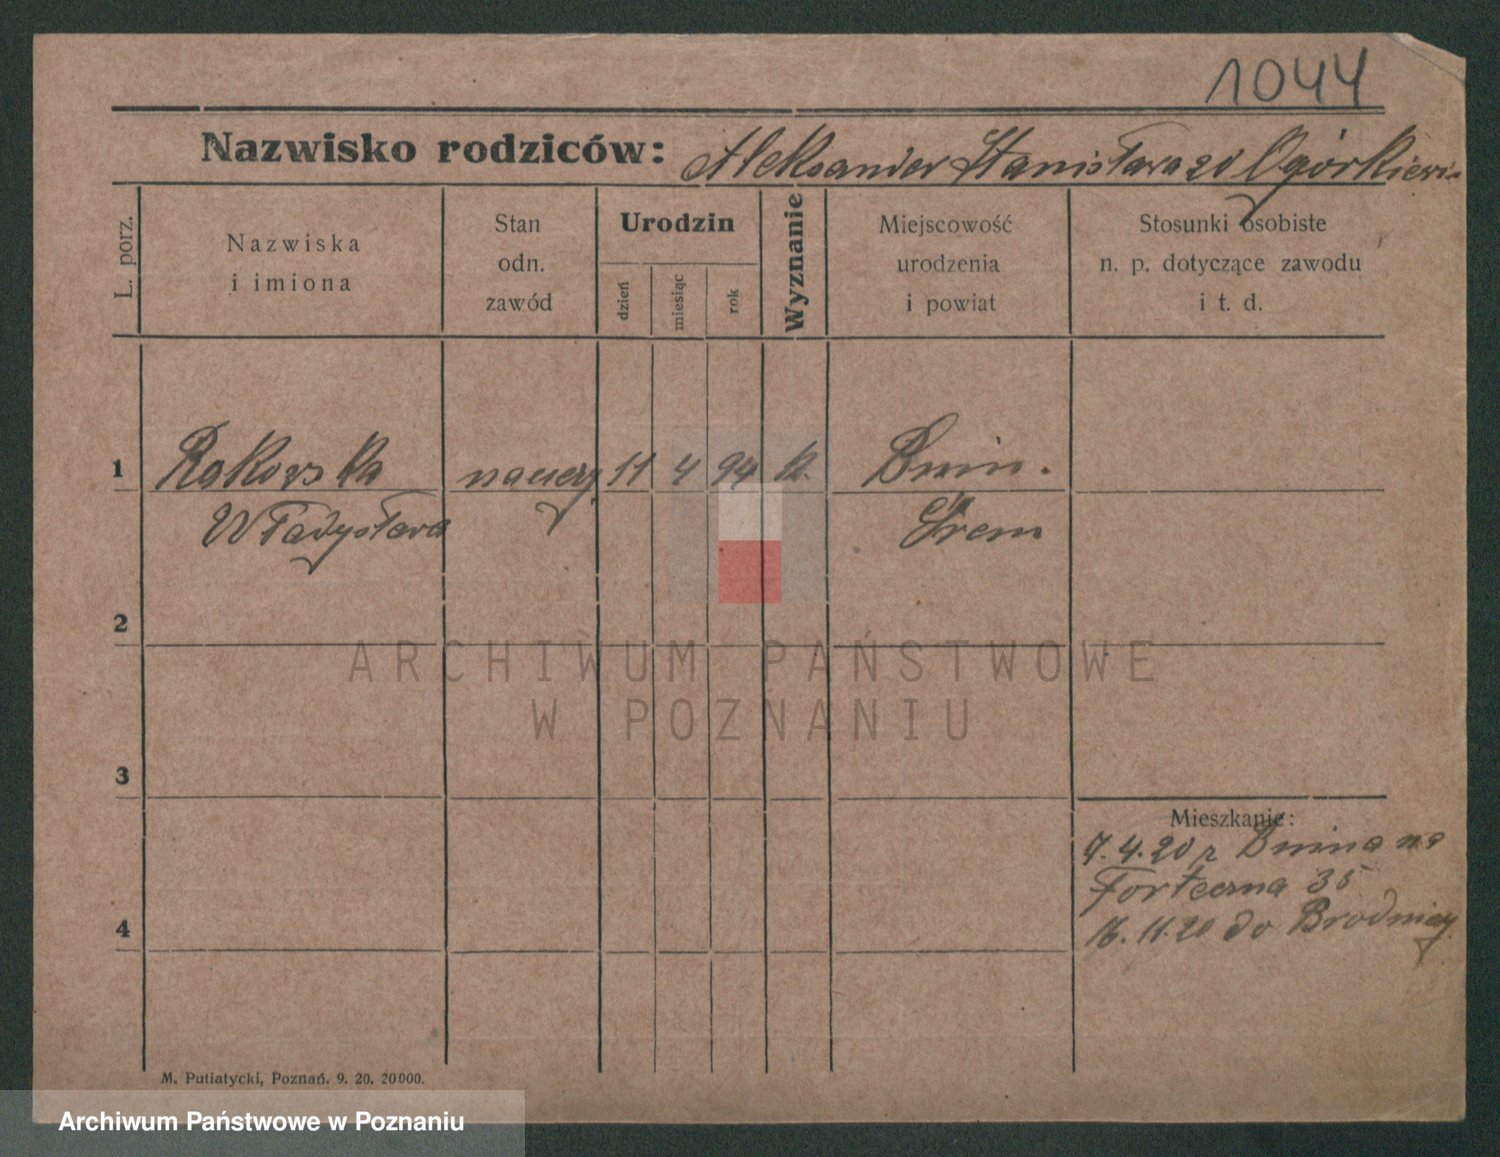 1044
Nazwisko rodziców: Aleksander Stanisława zd Ogórkiewi
L. porz.
Nazwiska
i imiona
Stan
odn.
zawód
Urodzin
dzień
miesiąc
rok
Wyznanie
Miejscowość
urodzenia
i powiat
Stosunki osobiste
n. p. dotyczące zawodu
i t. d.
1 Rakowska 11 4 94 k. Bnin.
Władysława Śrem
2
ARCHIWUM PAŃSTWOWE
W POZNANIU
3
Mieszkanie:
7.4.20 z Bnina na
Forteczna 35
4
16.11.20 do Brodnicy.
M. Putiatycki, Poznań. 9. 20. 20000.
Archiwum Państwowe w Poznaniu